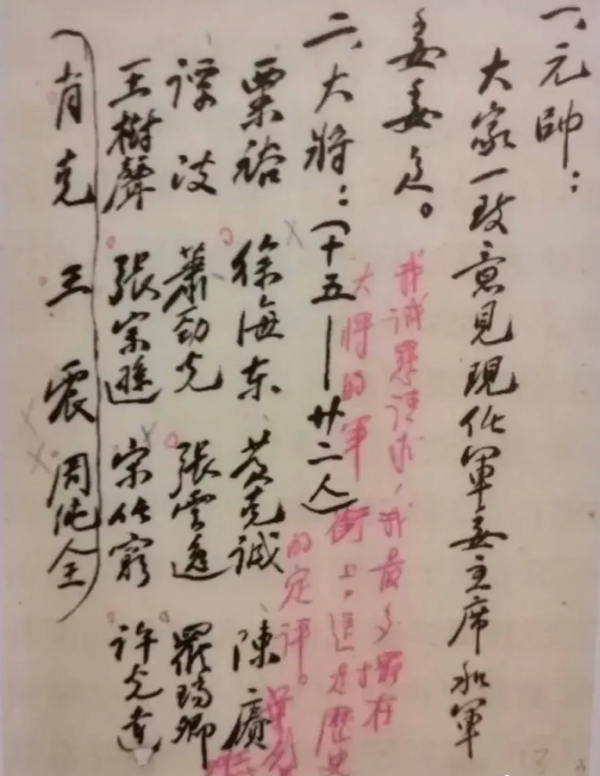 一、元帥：
大家一致意見現任軍委主席和軍
委委员。
我诚恳请求，我最多在
大將的軍衔上。這才歷史
的定评。
二、大將：（十五—廿二人）
粟裕 徐海东 黄克诚 陳賡
谭政 蕭劲光 張雲逸 羅瑞卿
王樹聲 張宗遜 宋任窮 許光達
（肖克 王震 周纯全）